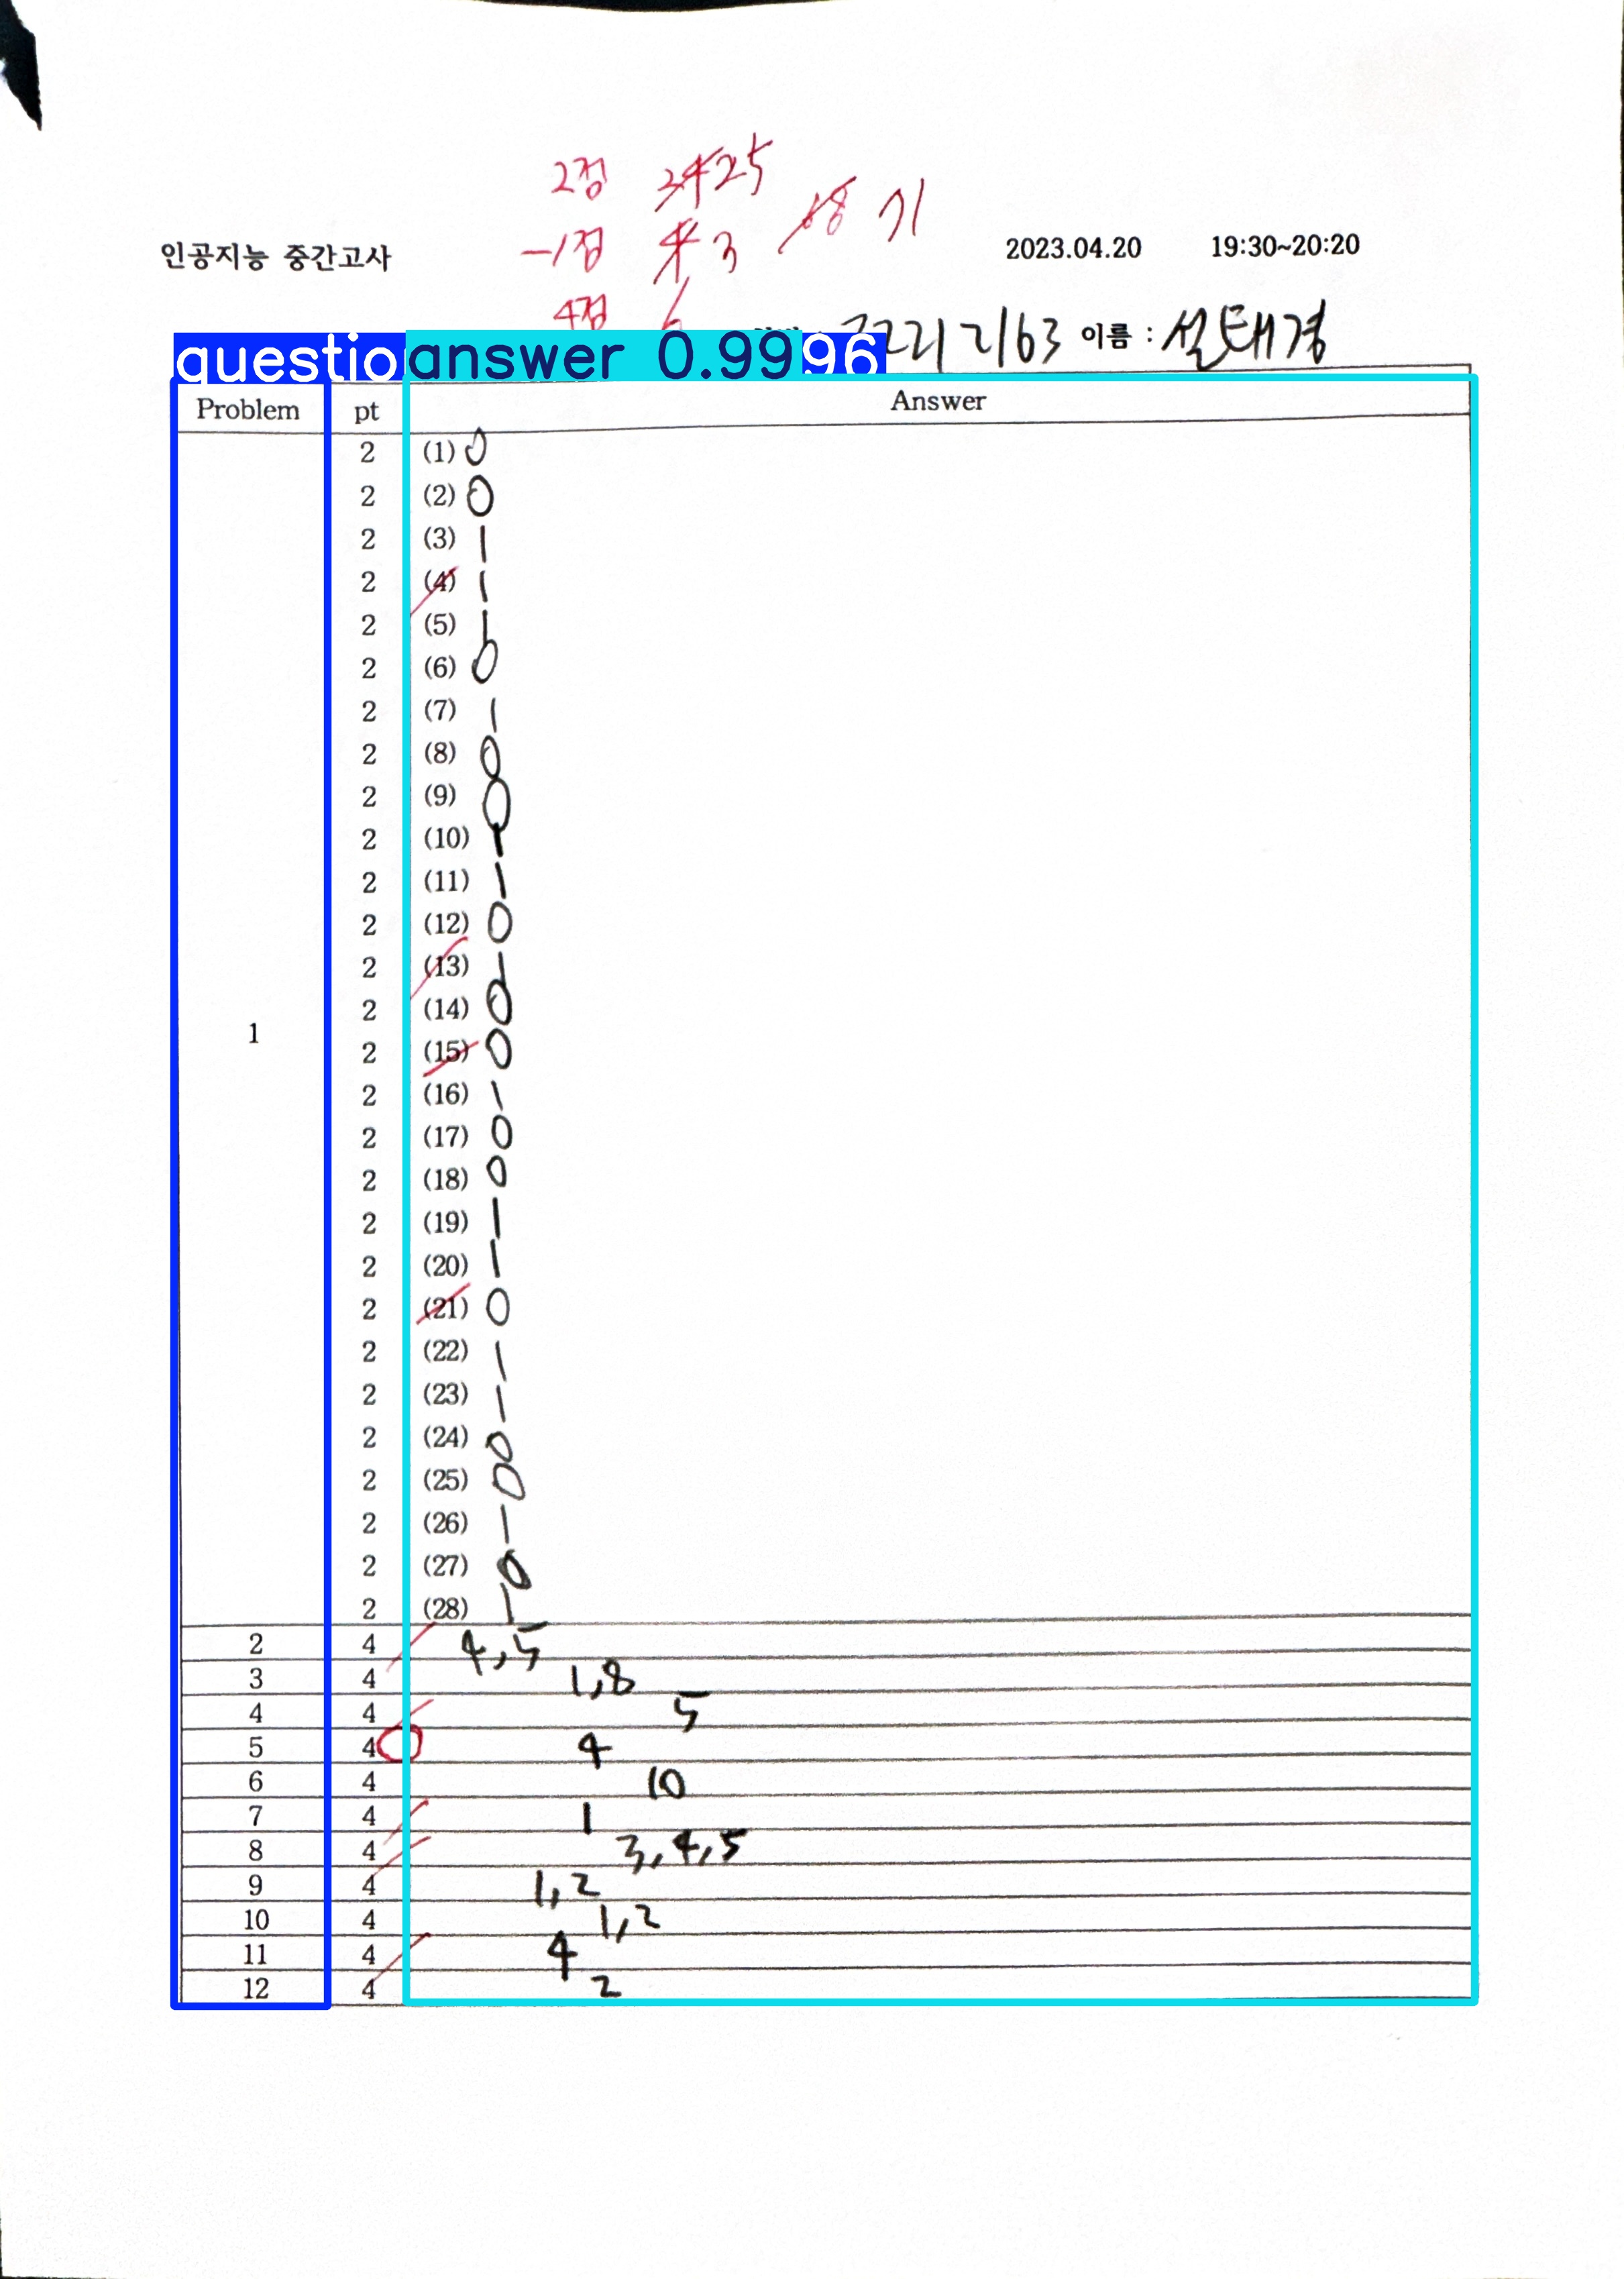 2점 25
-1점 3 71
인공지능 중간고사 2023.04.20 19:30~20:20
4점 6
questio answer 0.99 96 2212163 이름 : 설태경
Problem pt Answer
2 (1) 0
2 (2) 0
2 (3) 1
2 (4) 1
2 (5) 1
2 (6) 0
2 (7) 1
2 (8) 0
2 (9) 0
2 (10) 1
2 (11) 1
2 (12) 0
2 (13) 1
2 (14) 0
1 2 (15) 0
2 (16) 1
2 (17) 0
2 (18) 0
2 (19) 1
2 (20) 1
2 (21) 0
2 (22) 1
2 (23) 1
2 (24) 0
2 (25) 0
2 (26) 1
2 (27) 0
2 (28) 1
2 4 4,5
3 4 1,8
4 4 5
5 4 4
6 4 10
7 4 1
8 4 3,4,5
9 4 1,2
10 4 1,2
11 4 4
12 4 2